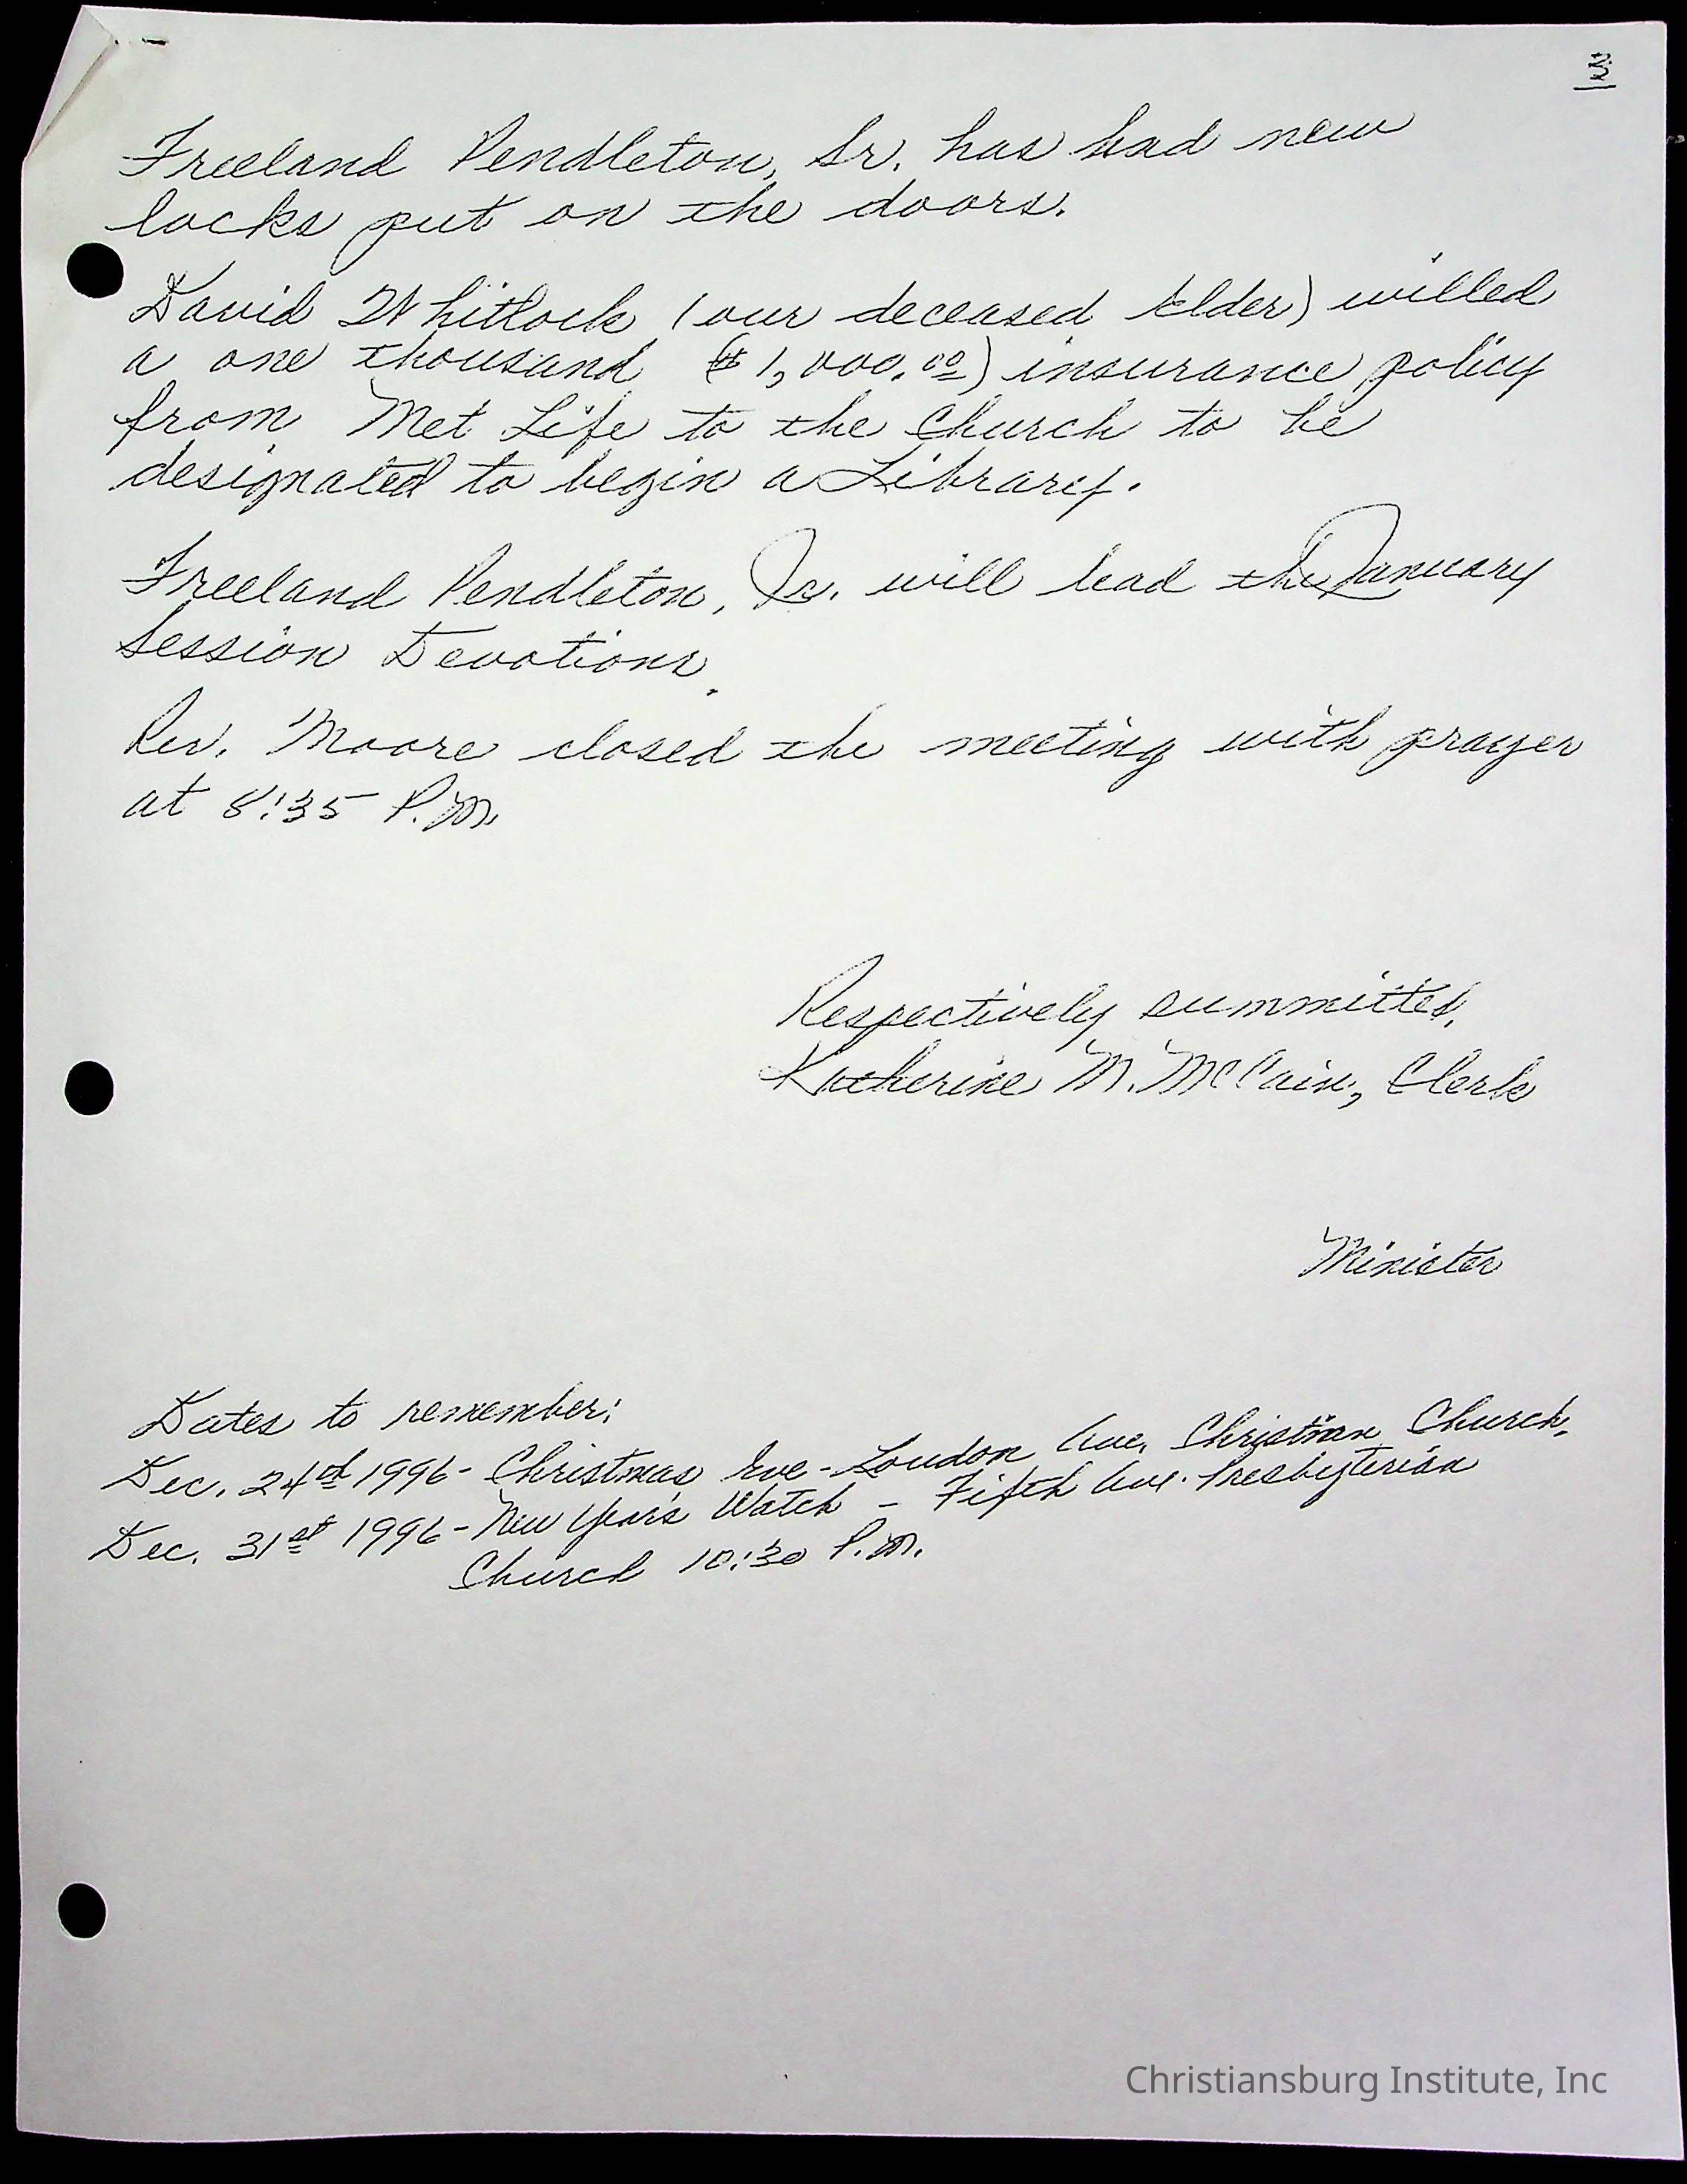 3
Freeland Pendleton, Sr. has had new
locks put on the doors.
David Whitlock (our deceased Elder) willed
a one thousand ($1,000.00) insurance policy
from Met Life to the Church to be
designated to begin a Library.
Freeland Pendleton, Jr. will lead the January
Session Devotions.
Rev. Moore closed the meeting with prayer
at 8:35 P.M.
Respectively summitted,
Katherine M. McCain, Clerk
Minister
Dates to remember:
Dec. 24th 1996 - Christmas Eve - Loudon Ave. Christian Church.
Dec. 31st 1996 - New Year's Watch - Fifth Ave. Presbyterian
Church 10:30 P.M.
Christiansburg Institute, Inc